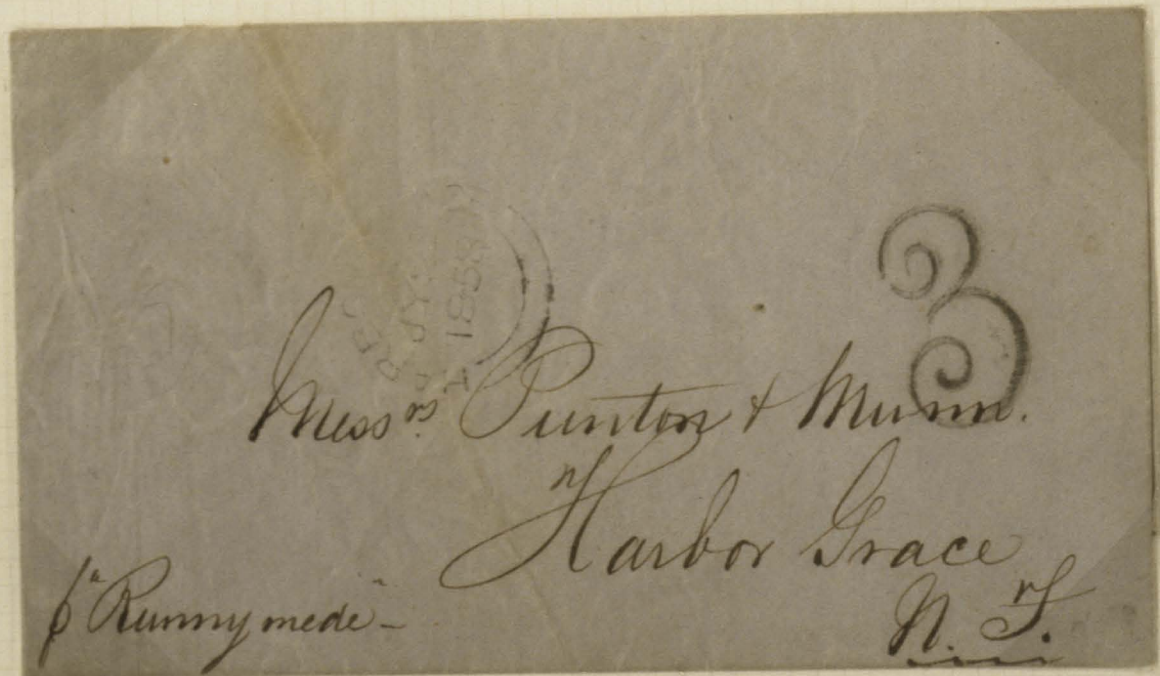 3
JY
1858
Messrs. Punton & Munn.
Harbor Grace
N. F.
p "Runnymede"-